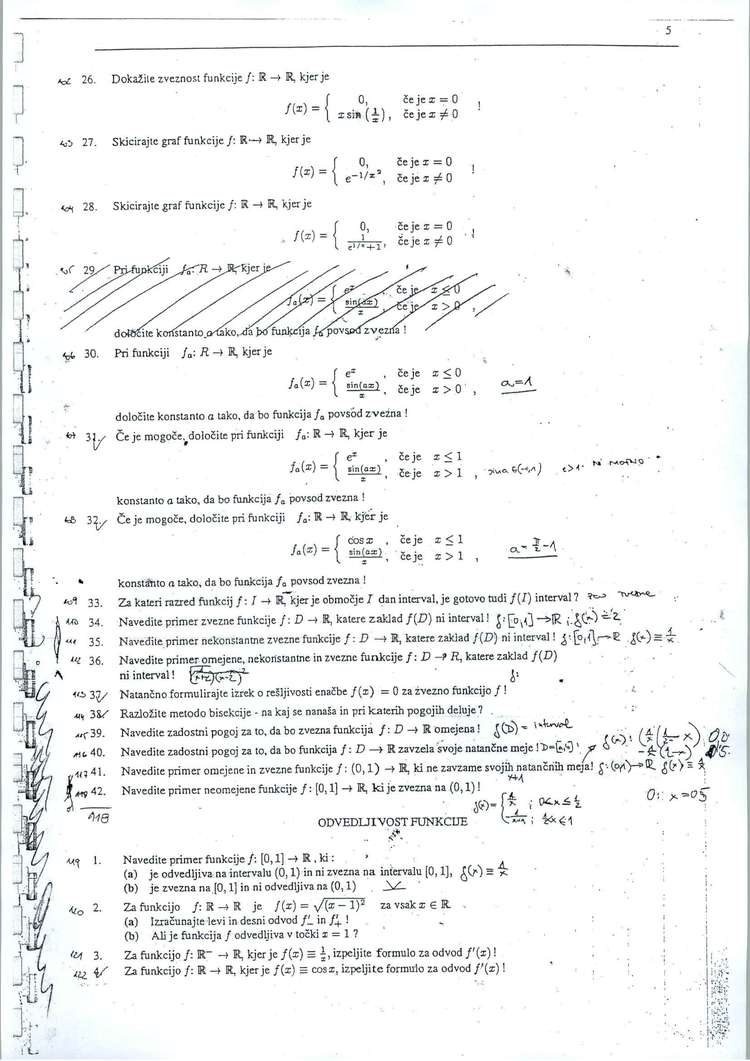 5
102 26. Dokažite zveznost funkcije f: ℝ → ℝ, kjer je
f(x) = { 0, če je x = 0
x sin (1/x), če je x ≠ 0 !
103 27. Skicirajte graf funkcije f: ℝ → ℝ, kjer je
f(x) = { 0, če je x = 0
e^{-1/x²}, če je x ≠ 0 !
104 28. Skicirajte graf funkcije f: ℝ → ℝ, kjer je
f(x) = { 0, če je x = 0
1/(e^{1/x}+1), če je x ≠ 0 !
29. Pri funkciji fₐ: R → ℝ, kjer je
fₐ(x) = { eˣ, če je x ≤ 0
sin(ax)/x, če je x > 0,
določite konstanto a tako, da bo funkcija fₐ povsod zvezna !
106 30. Pri funkciji fₐ: R → ℝ, kjer je
fₐ(x) = { eˣ, če je x ≤ 0
sin(ax)/x, če je x > 0, a=1
določite konstanto a tako, da bo funkcija fₐ povsod zvezna !
107 31. Če je mogoče, določite pri funkciji fₐ: ℝ → ℝ, kjer je
fₐ(x) = { eˣ, če je x ≤ 1
sin(ax)/x, če je x > 1, e>1
konstanto a tako, da bo funkcija fₐ povsod zvezna !
108 32. Če je mogoče, določite pri funkciji fₐ: ℝ → ℝ, kjer je
fₐ(x) = { cos x, če je x ≤ 1
sin(ax)/x, če je x > 1, a = π/2 - 1
konstanto a tako, da bo funkcija fₐ povsod zvezna !
109 33. Za kateri razred funkcij f: I → ℝ, kjer je območje I dan interval, je gotovo tudi f(I) interval ?
110 34. Navedite primer zvezne funkcije f: D → ℝ, katere zaklad f(D) ni interval !
111 35. Navedite primer nekonstantne zvezne funkcije f: D → ℝ, katere zaklad f(D) ni interval !
112 36. Navedite primer omejene, nekonstantne in zvezne funkcije f: D → R, katere zaklad f(D)
ni interval !
113 37. Natančno formulirajte izrek o rešljivosti enačbe f(x) = 0 za zvezno funkcijo f !
114 38. Razložite metodo bisekcije - na kaj se nanaša in pri katerih pogojih deluje ?
115 39. Navedite zadostni pogoj za to, da bo zvezna funkcija f: D → ℝ omejena ! f(D) = interval
116 40. Navedite zadostni pogoj za to, da bo funkcija f: D → ℝ zavzela svoje natančne meje ! D=[a,b]
117 41. Navedite primer omejene in zvezne funkcije f: (0, 1) → ℝ, ki ne zavzame svojih natančnih meja! f: (0,1)→ℝ
42. Navedite primer neomejene funkcije f: [0, 1] → ℝ, ki je zvezna na (0, 1) !
118
ODVEDLJIVOST FUNKCIJE
119 1. Navedite primer funkcije f: [0, 1] → ℝ, ki :
(a) je odvedljiva na intervalu (0, 1) in ni zvezna na intervalu [0, 1], f(x) ≡ 1/x
(b) je zvezna na [0, 1] in ni odvedljiva na (0, 1)
120 2. Za funkcijo f: ℝ → ℝ je f(x) = √(x − 1)² za vsak x ∈ ℝ
(a) Izračunajte levi in desni odvod f'₋ in f'₊ !
(b) Ali je funkcija f odvedljiva v točki x = 1 ?
121 3. Za funkcijo f: ℝ⁻ → ℝ, kjer je f(x) ≡ 1/x, izpeljite formulo za odvod f'(x) !
122 4. Za funkcijo f: ℝ → ℝ, kjer je f(x) ≡ cos x, izpeljite formulo za odvod f'(x) !